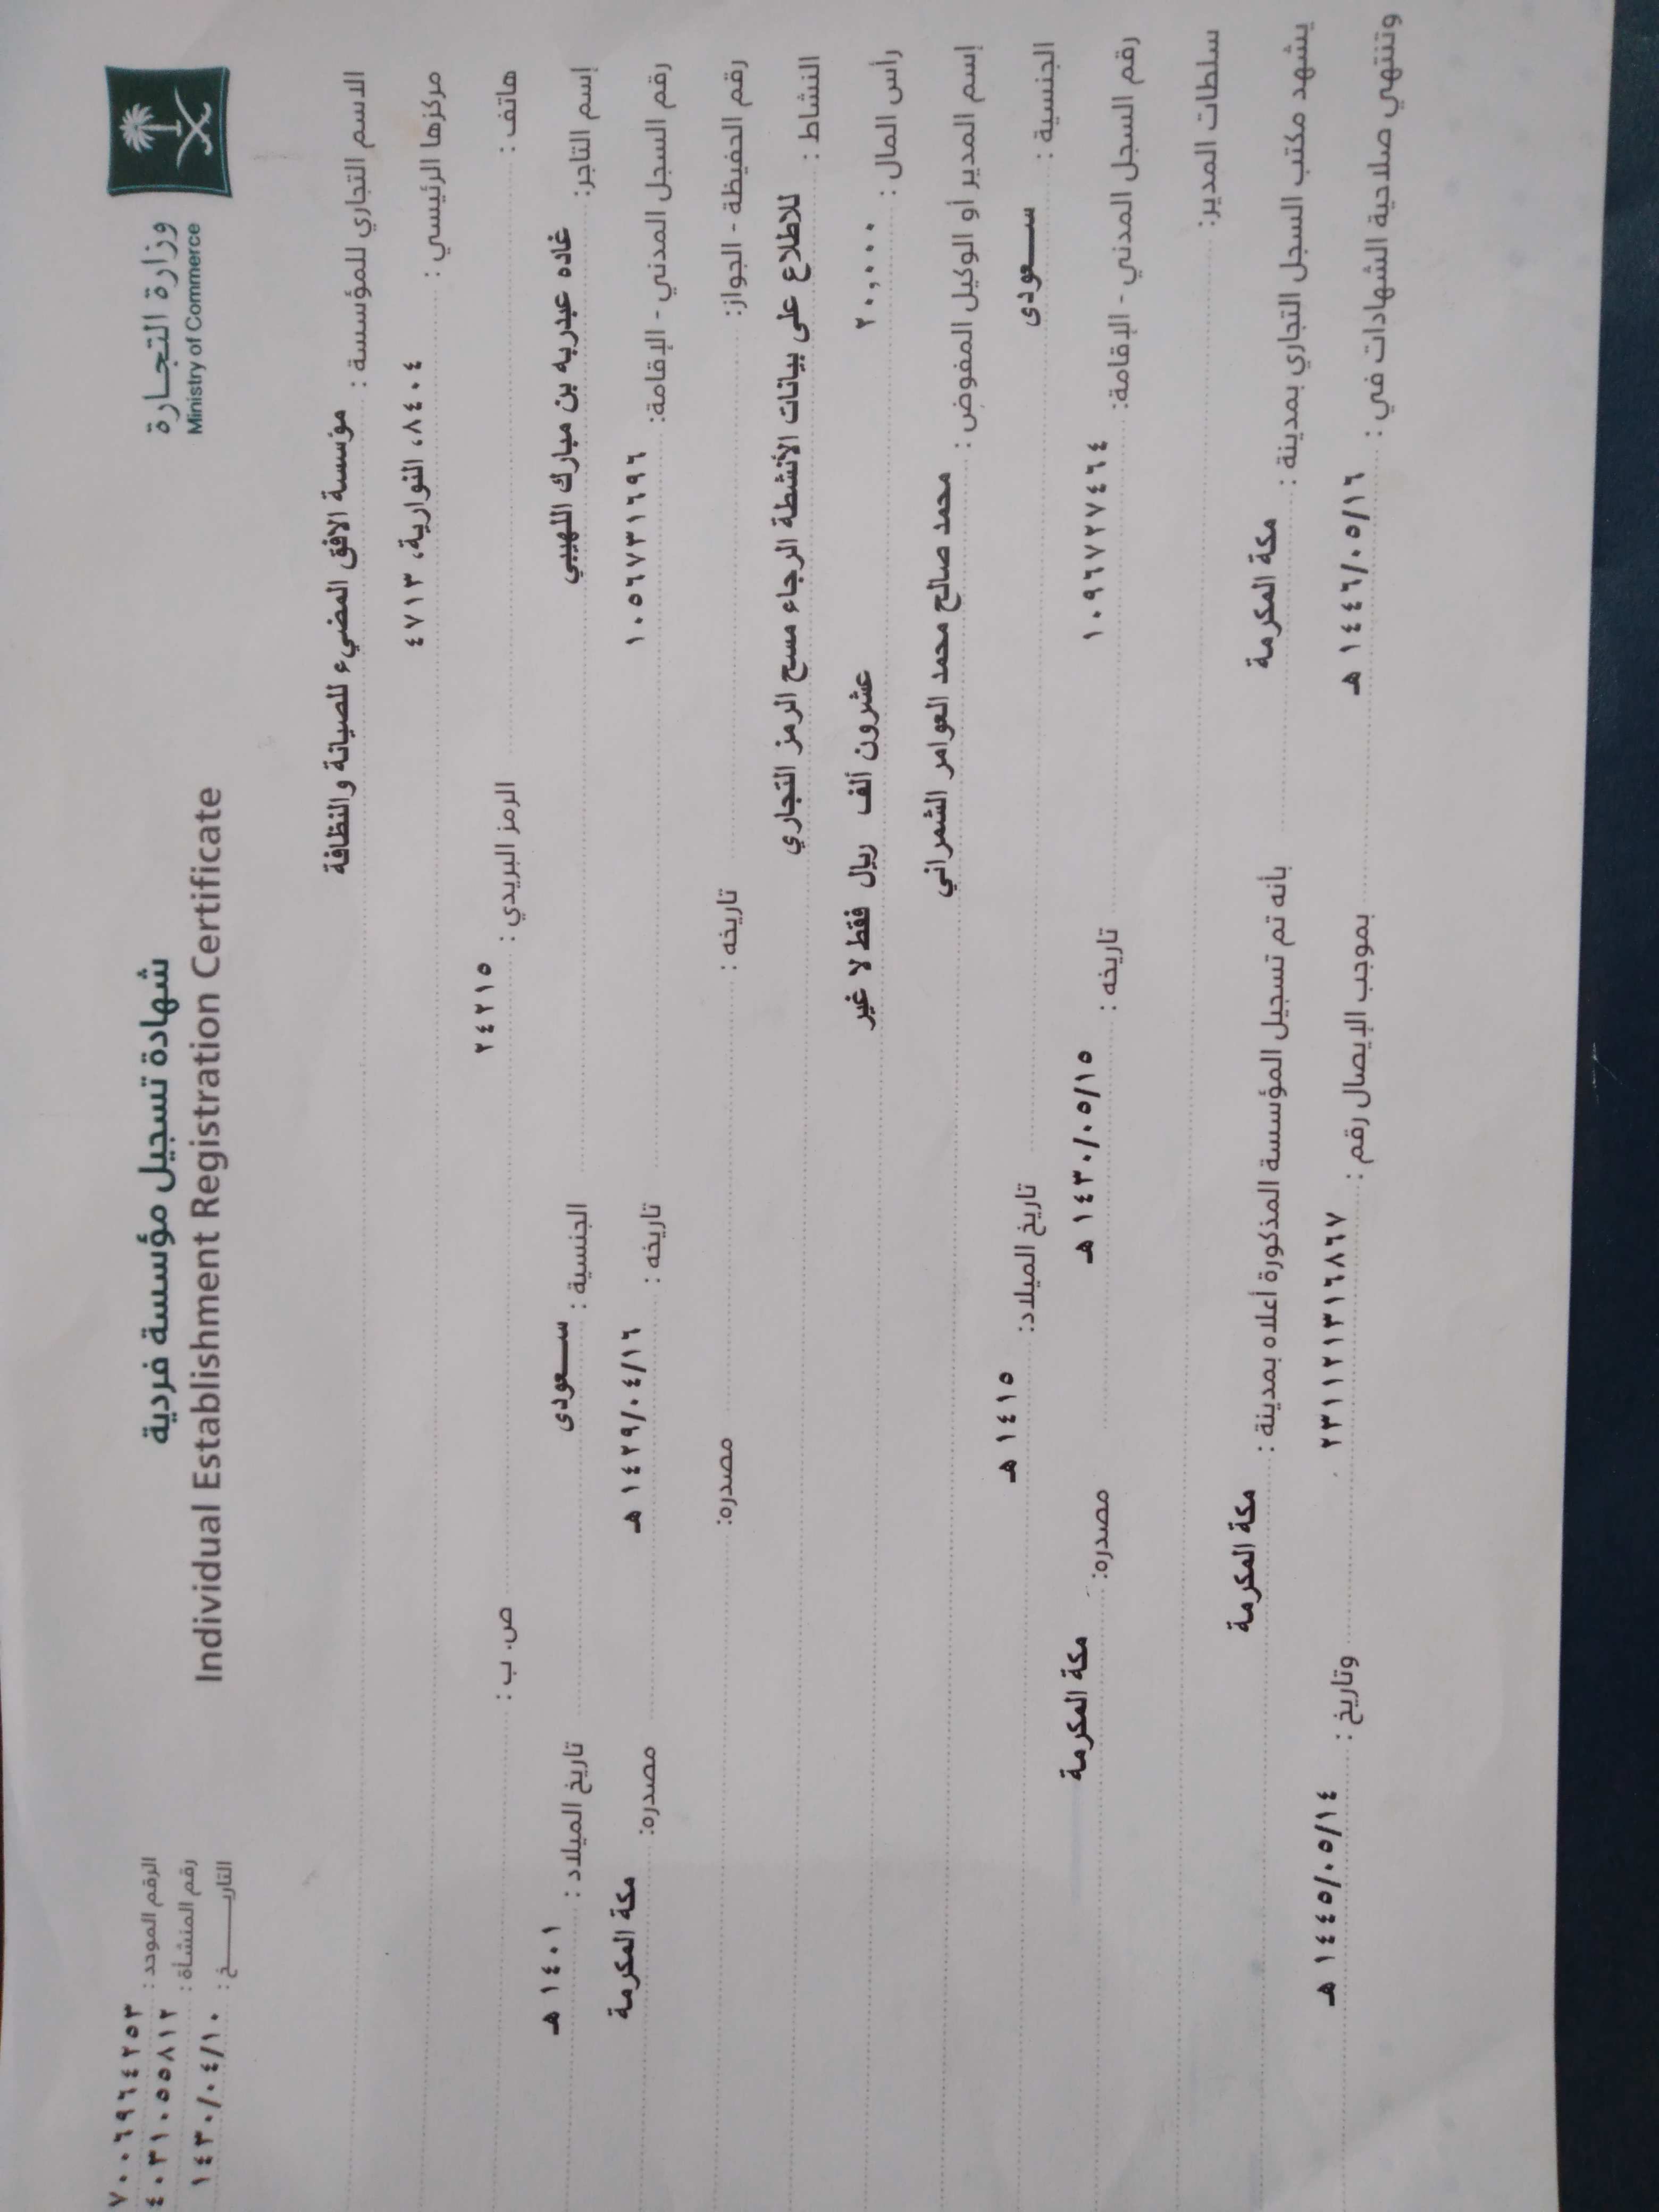 وزارة التجارة
Ministry of Commerce
شهادة تسجيل مؤسسة فردية
Individual Establishment Registration Certificate
الرقم الموحد : ٧٠٠٦٩٦٤٢٥٣
رقم المنشأة : ٤٠٣١٠٥٥٨١٢
التاريـــــــخ : ١٤٣٠/٠٤/١٠
الاسم التجاري للمؤسسة : مؤسسة الافق المضيء للصيانة والنظافة
مركزها الرئيسي : ٨٤٠٤، النوارية، ٤٧١٣
هاتف : الرمز البريدي : ٢٤٢١٥ ص. ب :
إسم التاجر: غاده عبدربه بن مبارك اللهيبي الجنسية : ســـعودى تاريخ الميلاد : ١٤٠١ هـ
رقم السجل المدني - الإقامة: ١٠٥٦٧٣١٦٩٦ تاريخه : ١٤٢٩/٠٤/١٦ هـ مصدره: مكة المكرمة
رقم الحفيظة - الجواز: تاريخه : مصدره:
النشاط : للاطلاع على بيانات الأنشطة الرجاء مسح الرمز التجاري
رأس المال : ٢٠,٠٠٠ عشرون ألف ريال فقط لا غير
إسم المدير أو الوكيل المفوض : محمد صالح محمد العوامر الشمراني
الجنسية : ســـعودى تاريخ الميلاد: ١٤١٥ هـ
رقم السجل المدني - الإقامة: ١٠٩٦٧٢٧٤٦٤ تاريخه : ١٤٣٠/٠٥/١٥ هـ مصدره: مكة المكرمة
سلطات المدير:
يشهد مكتب السجل التجاري بمدينة : مكة المكرمة بأنه تم تسجيل المؤسسة المذكورة أعلاه بمدينة : مكة المكرمة
وتنتهي صلاحية الشهادات في : ١٤٤٦/٠٥/١٦ هـ بموجب الإيصال رقم : ٢٣١١٢١٣١٦٨٦٧ وتاريخ : ١٤٤٥/٠٥/١٤ هـ